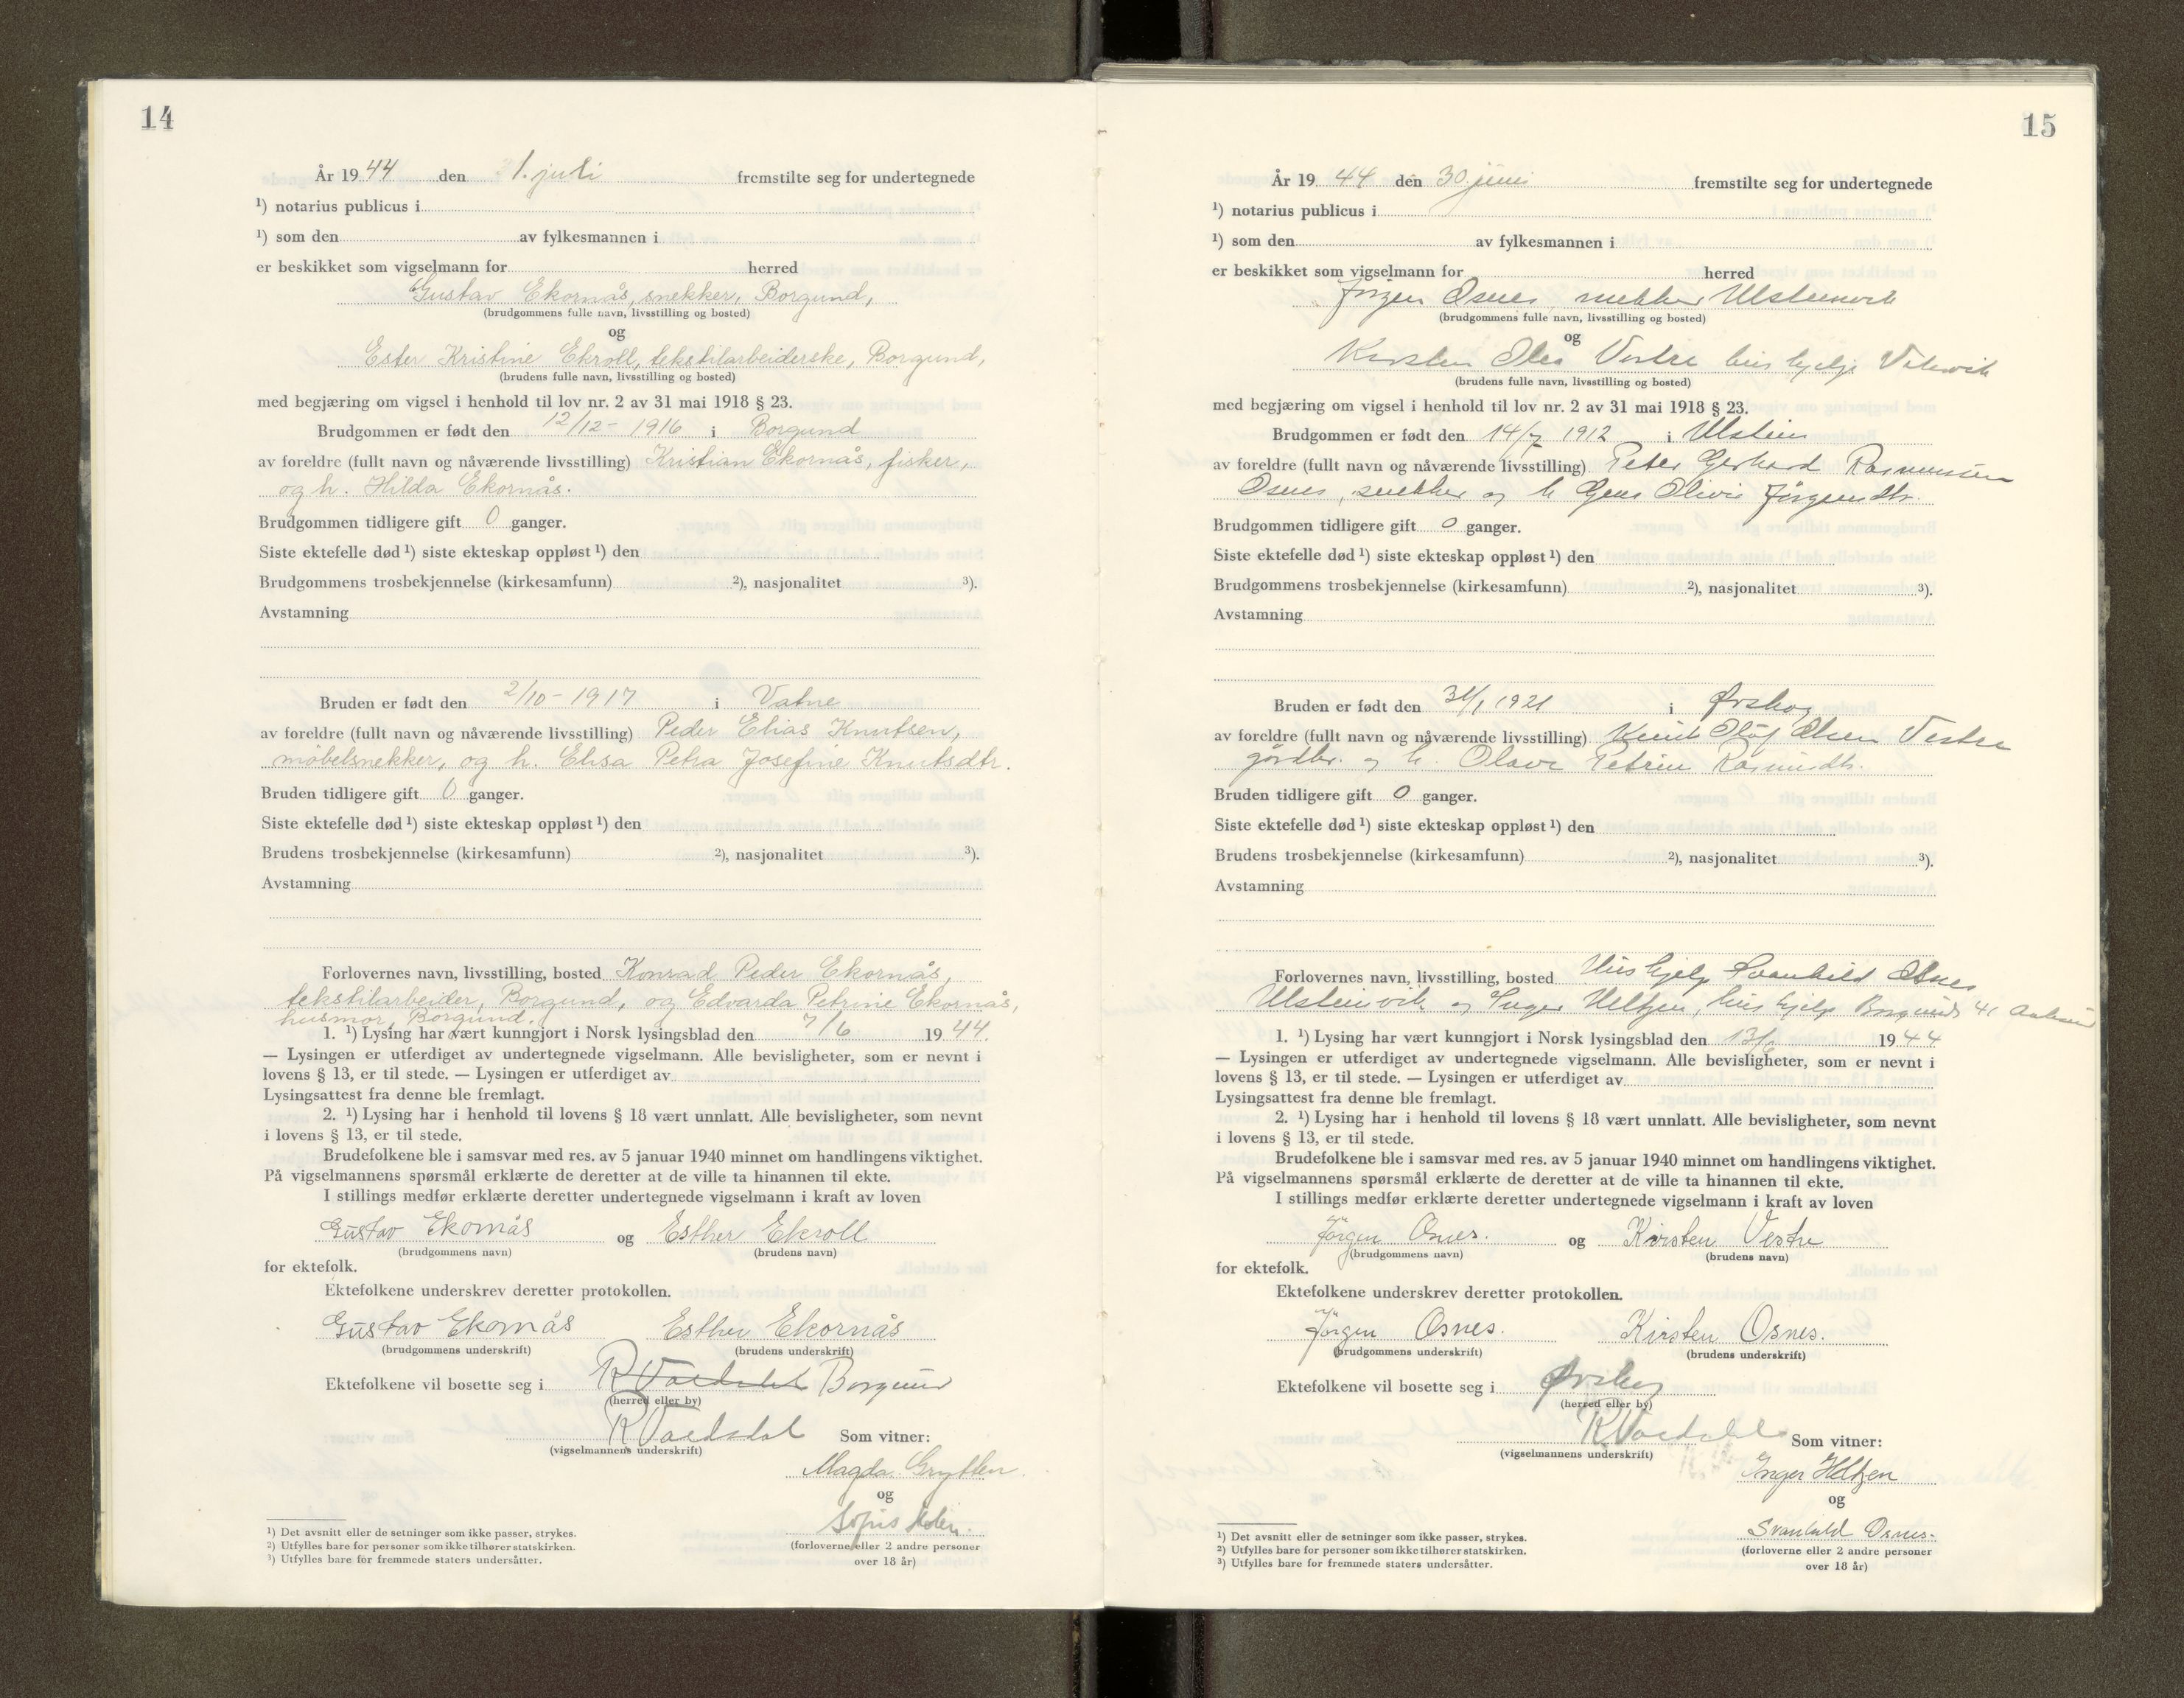 14
År 1944 den 1. juli fremstilte seg for undertegnede
¹) notarius publicus i
¹) som den av fylkesmannen i
er beskikket som vigselmann for herred
Gustav Ekornås, snekker, Borgund,
(brudgommens fulle navn, livsstilling og bosted)
og
Ester Kristine Ekroll, tekstilarbeiderske, Borgund,
(brudens fulle navn, livsstilling og bosted)
med begjæring om vigsel i henhold til lov nr. 2 av 31 mai 1918 § 23.
Brudgommen er født den 12/12 - 1916 i Borgund
av foreldre (fullt navn og nåværende livsstilling) Kristian Ekornås, fisker,
og h. Hilda Ekornås.
Brudgommen tidligere gift 0 ganger.
Siste ektefelle død ¹) siste ekteskap oppløst ¹) den
Brudgommens trosbekjennelse (kirkesamfunn) ²), nasjonalitet ³).
Avstamning
Bruden er født den 2/10 - 1917 i Vatne
av foreldre (fullt navn og nåværende livsstilling) Peder Elias Knutsen,
möbelsnekker, og h. Elisa Petra Josefine Knutsdtr.
Bruden tidligere gift 0 ganger.
Siste ektefelle død ¹) siste ekteskap oppløst ¹) den
Brudens trosbekjennelse (kirkesamfunn) ²), nasjonalitet ³).
Avstamning
Forlovernes navn, livsstilling, bosted Konrad Peder Ekornås,
tekstilarbeider, Borgund, og Edvarda Petrine Ekornås,
husmor, Borgund.
1. ¹) Lysing har vært kunngjort i Norsk lysingsblad den 7/6 1944.
— Lysingen er utferdiget av undertegnede vigselmann. Alle bevisligheter, som er nevnt i
lovens § 13, er til stede. — Lysingen er utferdiget av
Lysingsattest fra denne ble fremlagt.
2. ¹) Lysing har i henhold til lovens § 18 vært unnlatt. Alle bevisligheter, som nevnt
i lovens § 13, er til stede.
Brudefolkene ble i samsvar med res. av 5 januar 1940 minnet om handlingens viktighet.
På vigselmannens spørsmål erklærte de deretter at de ville ta hinannen til ekte.
I stillings medfør erklærte deretter undertegnede vigselmann i kraft av loven
Gustav Ekornås og Esther Ekroll
(brudgommens navn) (brudens navn)
for ektefolk.
Ektefolkene underskrev deretter protokollen.
Gustav Ekornås Esther Ekornås
(brudgommens underskrift) (brudens underskrift)
Ektefolkene vil bosette seg i Borgund
(herred eller by)
(vigselmannens underskrift) Som vitner:
Magda Grytten
og
(forloverne eller 2 andre personer
over 18 år)
¹) Det avsnitt eller de setninger som ikke passer, strykes.
²) Utfylles bare for personer som ikke tilhører statskirken.
³) Utfylles bare for fremmede staters undersåtter.
15
År 1944 den 30 juni fremstilte seg for undertegnede
¹) notarius publicus i
¹) som den av fylkesmannen i
er beskikket som vigselmann for herred
Jörgen Osnes, snekker Ulsteinvik
(brudgommens fulle navn, livsstilling og bosted)
og
Kirsten Vestre hushjelp
(brudens fulle navn, livsstilling og bosted)
med begjæring om vigsel i henhold til lov nr. 2 av 31 mai 1918 § 23.
Brudgommen er født den 14/7 1912 i Ulstein
av foreldre (fullt navn og nåværende livsstilling) Peter Gerhard Rasmussen
Osnes, snekker og h Olivie Jörgensdtr.
Brudgommen tidligere gift 0 ganger.
Siste ektefelle død ¹) siste ekteskap oppløst ¹) den
Brudgommens trosbekjennelse (kirkesamfunn) ²), nasjonalitet ³).
Avstamning
Bruden er født den 31/1 1921 i Ørskog
av foreldre (fullt navn og nåværende livsstilling) Knut Olaf Olsen Vestre
gårdbr. og h. Olava Petrine Rasmusdtr.
Bruden tidligere gift 0 ganger.
Siste ektefelle død ¹) siste ekteskap oppløst ¹) den
Brudens trosbekjennelse (kirkesamfunn) ²), nasjonalitet ³).
Avstamning
Forlovernes navn, livsstilling, bosted Hushjelp Svanhild Osnes
Ulsteinvik og Inger Heltzen, hushjelp
1. ¹) Lysing har vært kunngjort i Norsk lysingsblad den 13/6 1944
— Lysingen er utferdiget av undertegnede vigselmann. Alle bevisligheter, som er nevnt i
lovens § 13, er til stede. — Lysingen er utferdiget av
Lysingsattest fra denne ble fremlagt.
2. ¹) Lysing har i henhold til lovens § 18 vært unnlatt. Alle bevisligheter, som nevnt
i lovens § 13, er til stede.
Brudefolkene ble i samsvar med res. av 5 januar 1940 minnet om handlingens viktighet.
På vigselmannens spørsmål erklærte de deretter at de ville ta hinannen til ekte.
I stillings medfør erklærte deretter undertegnede vigselmann i kraft av loven
Jörgen Osnes. og Kirsten Vestre
(brudgommens navn) (brudens navn)
for ektefolk.
Ektefolkene underskrev deretter protokollen.
Jörgen Osnes. Kirsten Osnes.
(brudgommens underskrift) (brudens underskrift)
Ektefolkene vil bosette seg i Ørskog
(herred eller by)
(vigselmannens underskrift) Som vitner:
Inger Heltzen
og
Svanhild Osnes.
(forloverne eller 2 andre personer
over 18 år)
¹) Det avsnitt eller de setninger som ikke passer, strykes.
²) Utfylles bare for personer som ikke tilhører statskirken.
³) Utfylles bare for fremmede staters undersåtter.